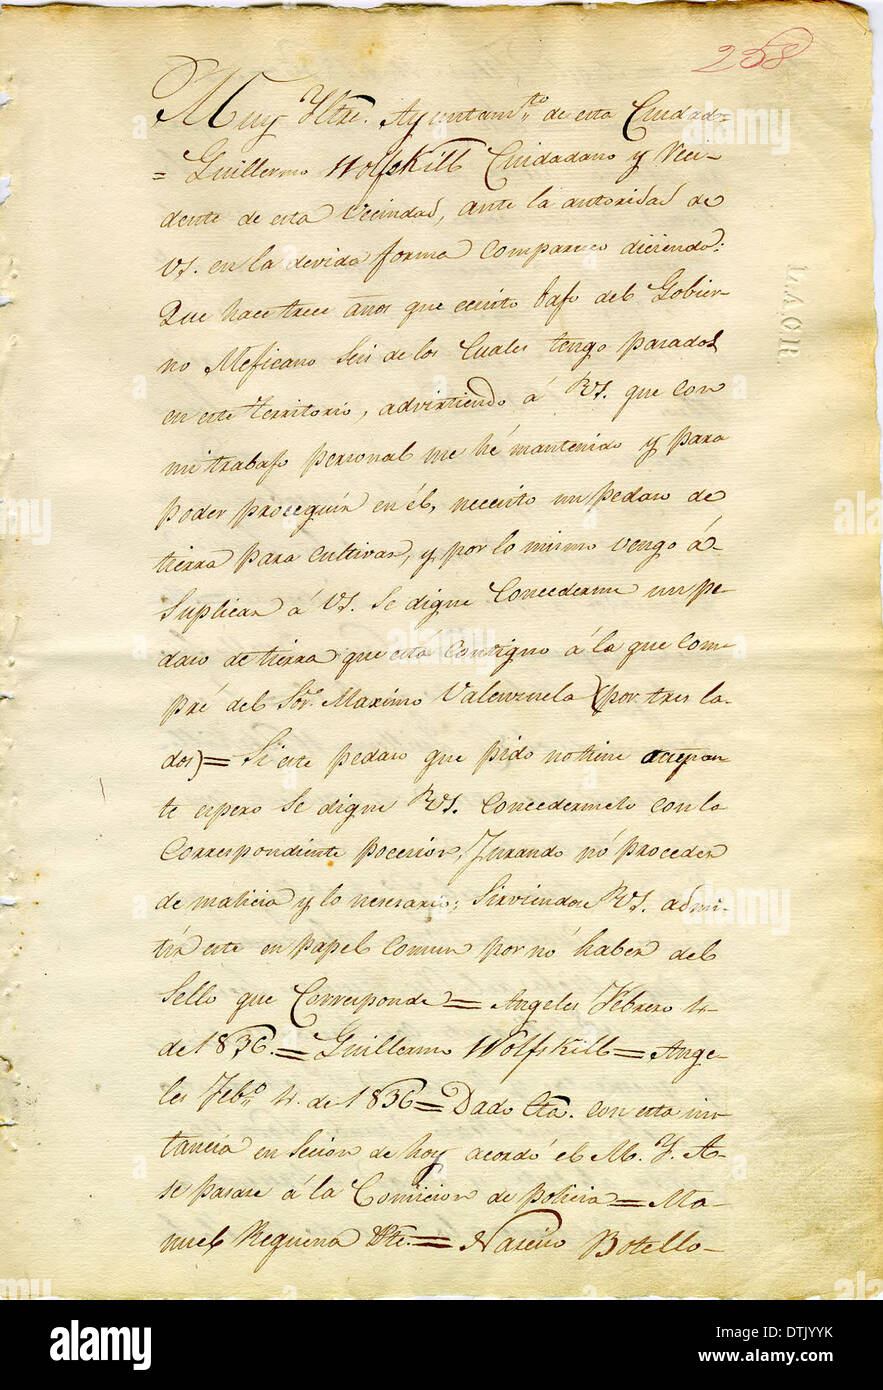 258
Muy Yltre. Ayuntam.to de esta Ciudad=
= Guillermo Wolfskill Ciudadano y Veci-
dente de esta Vecindad, ante la autoridad de
VS. en la devida forma comparesco diciendo:
Que hace trece años que ecsisto bajo del Gobier-
no Mejicano Seis de los Cuales tengo pasados
en este Territorio, advirtiendo á VS. que con
mi trabajo personal me hé mantenido y para
poder proceguir en él, necesito un pedaso de
tierra para cultivar, y por lo mismo vengo á
Suplicar á VS. se digne Concederme un pe-
daso de tierra que esta contigno á la que com-
pré del Sor. Maximo Valenzuela (por tres la-
dos)= Si este pedaso que pido no tiene
te espero Se digne VS. Concedermelo con la
Correspondiente pocecion, Jurando nó proceder
de malicia y lo nesesario; Sirviendose VS. admi-
tir este en papel comun por nó haber del
Sello que Corresponde= Angeles Febrero 4
de 1836.= Guillermo Wolfskill= Ange-
les Feb.o 4. de 1836= Dado Cta. con esta ins-
tancia en Secion de hoy acordó el M. Y. A-
se pasase á la Comicion de policia= Ma-
nuel Requena Pte.= Narciso Botello-
H.A.OR.
alamy
DTJYYK
www.alamy.com